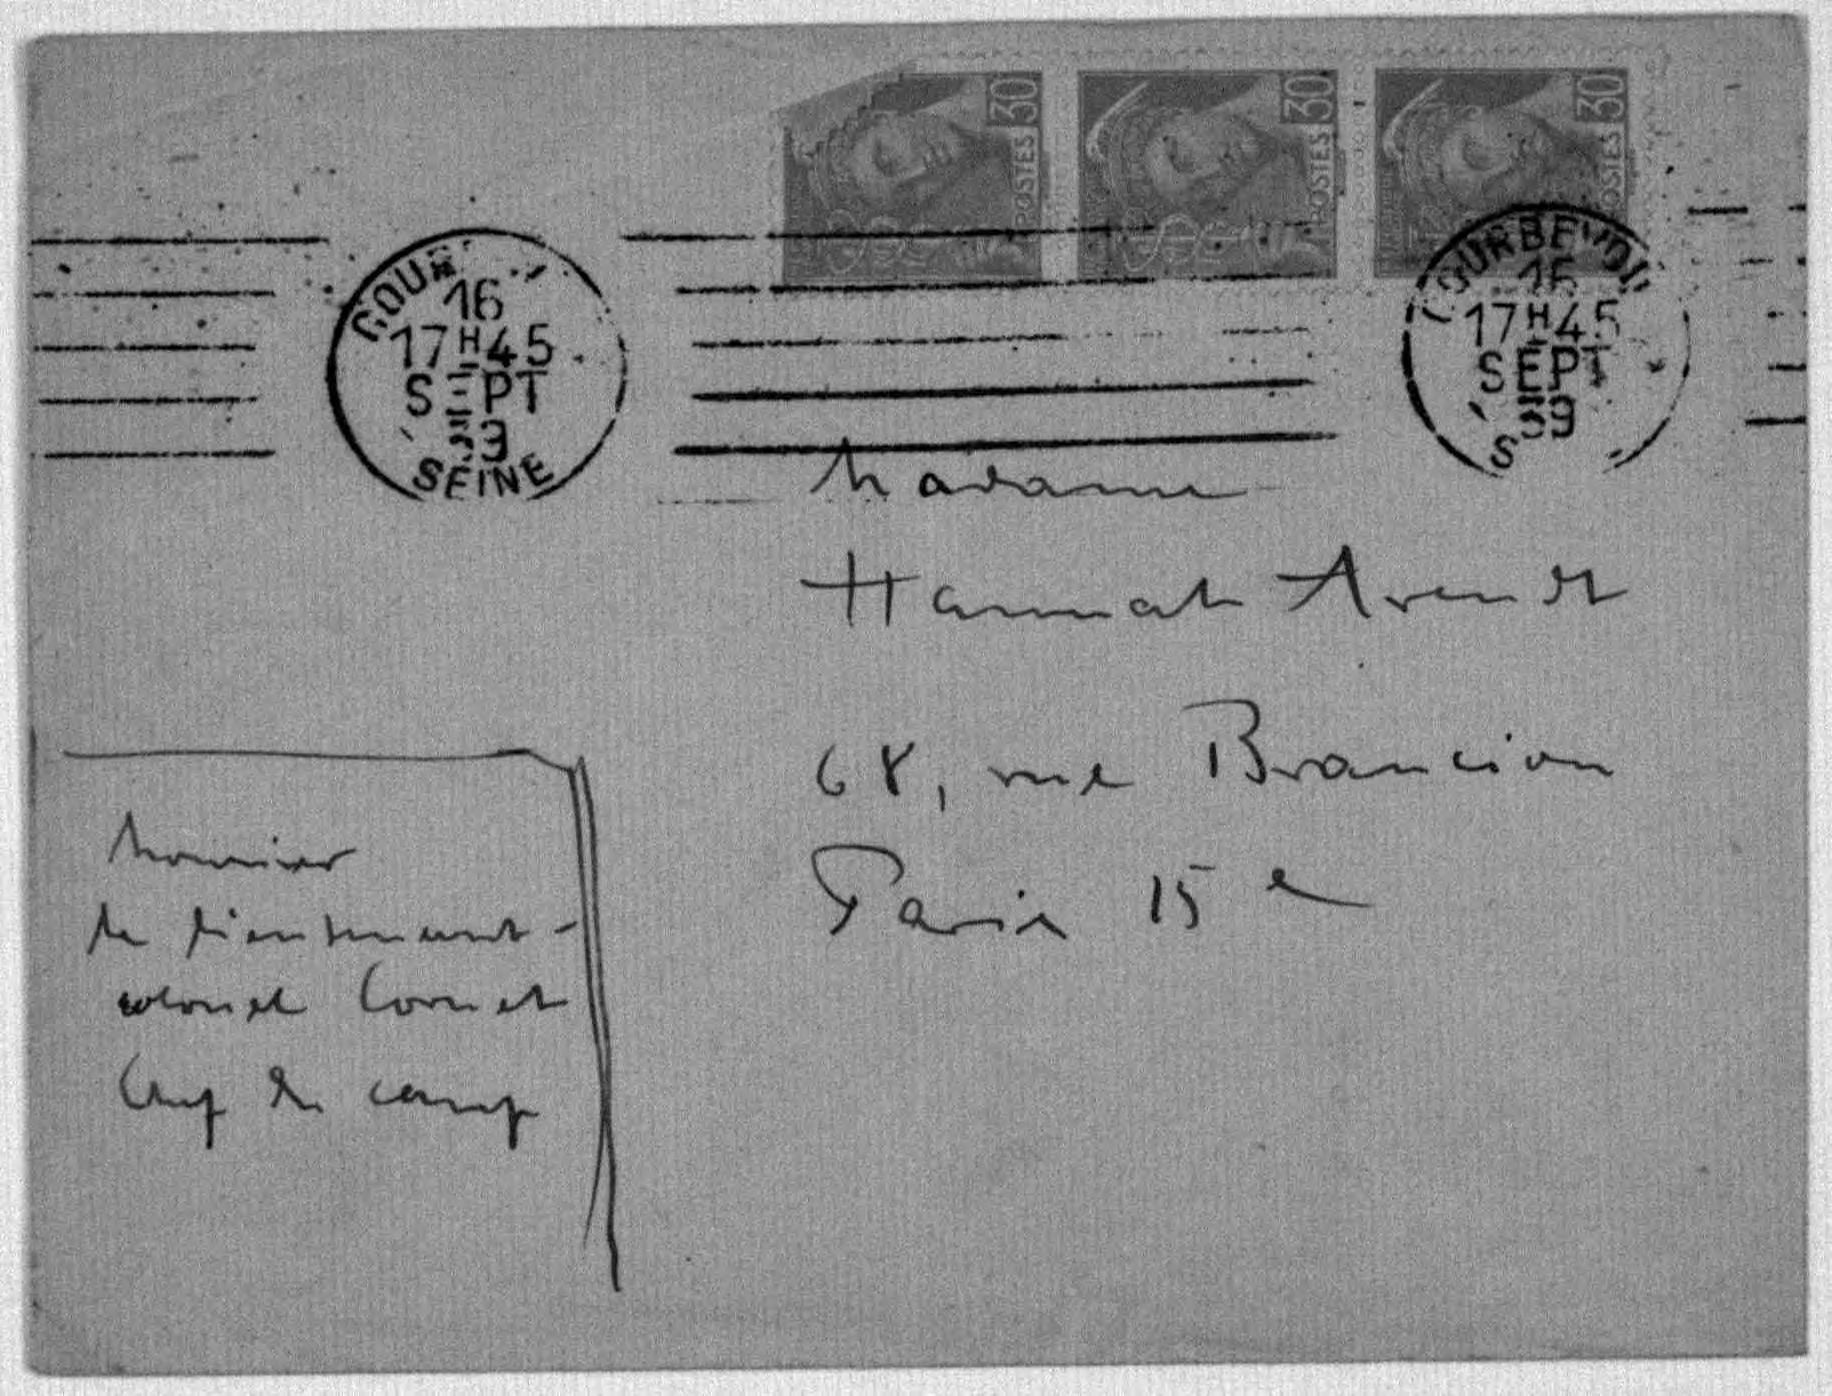 30 POSTES
30 POSTES
30 POSTES
COUR
16
17H45
SEPT
39
SEINE
COURBEVOI
16
17H45
SEPT
39
S
Madame
Hannah Arendt
68, rue Brancion
Paris 15e
Monsieur
le lieutenant-
colonel Cornet
Camp de camp